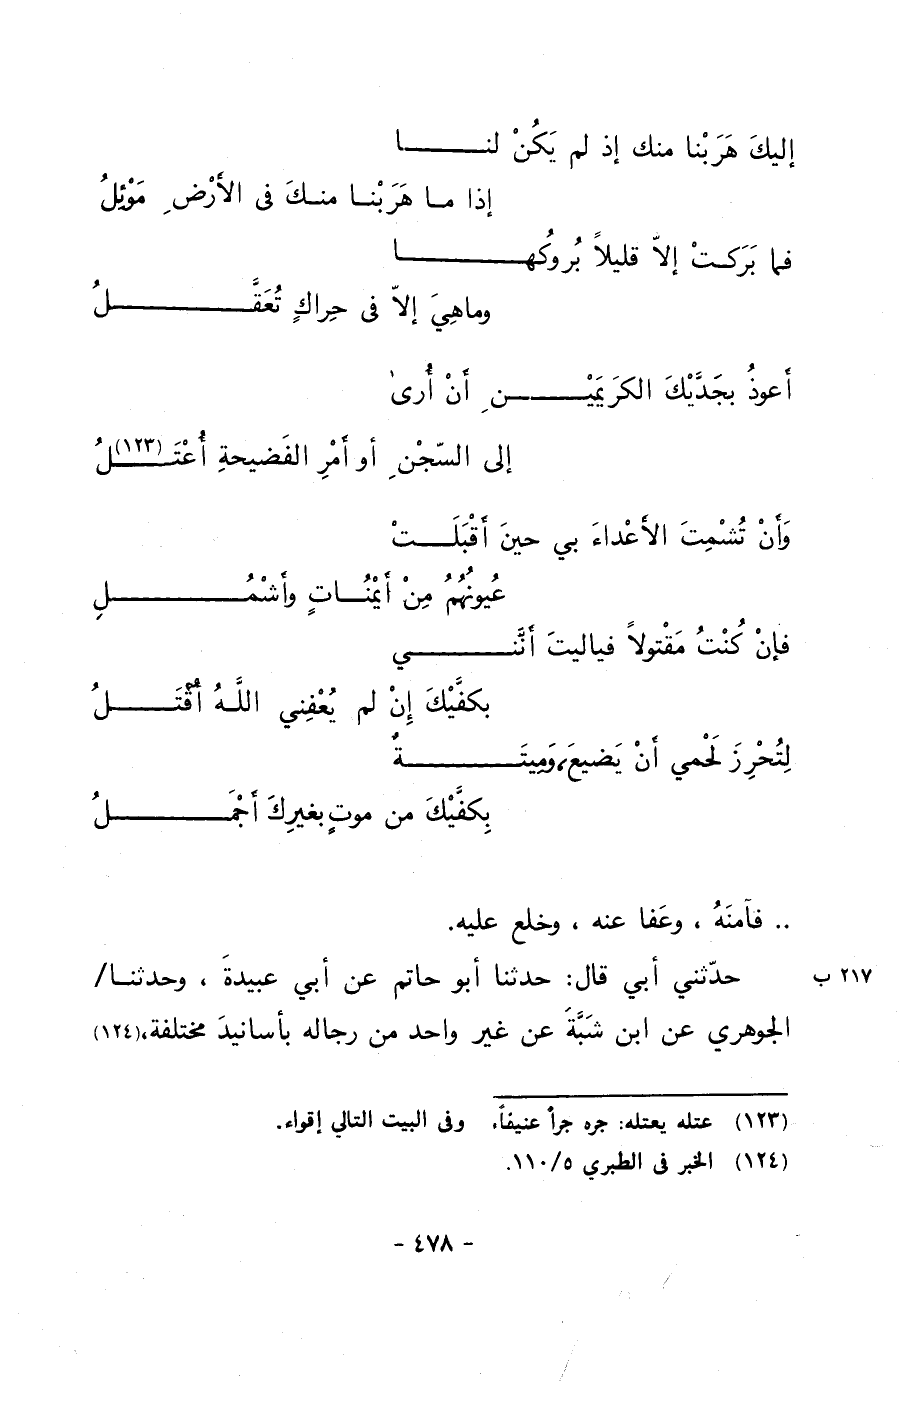 إليكَ هَرَبْنا منك إذ لم يَكُنْ لنـــا
إذا مـا هَرَبْنـا منـكَ فى الأَرْضِ مَوْئِلُ
فما بَرَكـتْ إلاّ قليلاً بُروكُهـــا
وماهِيَ إلاّ فى حِراكٍ تُعَقَّـــلُ
أَعوذُ بجَدَّيْكَ الكَرَيمَيْـــنِ أَنْ أُرىٰ
إلى السّجْنِ أو أَمْرِ الفَضيحةِ أُعْتَـــلُ(١٢٣)
وَأَنْ تُشْمِتَ الأَعْداءَ بي حينَ أَقْبَلَـــتْ
عُيونُهُمُ مِنْ أَيْمُنُـــاتٍ وأَشْمُـــلِ
فإنْ كُنْتُ مَقْتولاً فياليتَ أَنَّنـــي
بكفَّيْكَ إِنْ لم يُعْفِني اللَّـهُ أُقْتَـــلُ
لِتُحْرِزَ لَحْمي أَنْ يَضيعَ، وَمِيتَـــةٌ
بِكفَّيْكَ من موتٍ بغيرِكَ أَجْمَـــلُ
.. فآمنَهُ ، وعَفا عنه ، وخلع عليه.
٢١٧ ب حدّثني أبي قال: حدثنا أبو حاتم عن أبي عبيدةَ ، وحدثنـا/
الجوهري عن ابن شَبَّةَ عن غير واحد من رجاله بأسانيدَ مختلفة،(١٢٤)
(١٢٣) عتله يعتله: جره جراً عنيفاً، وفى البيت التالي إقواء.
(١٢٤) الخبر فى الطبري ١١٠/٥.
- ٤٧٨ -